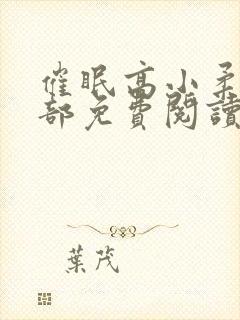 催眠高小柔
部免費閱讀
葉茂